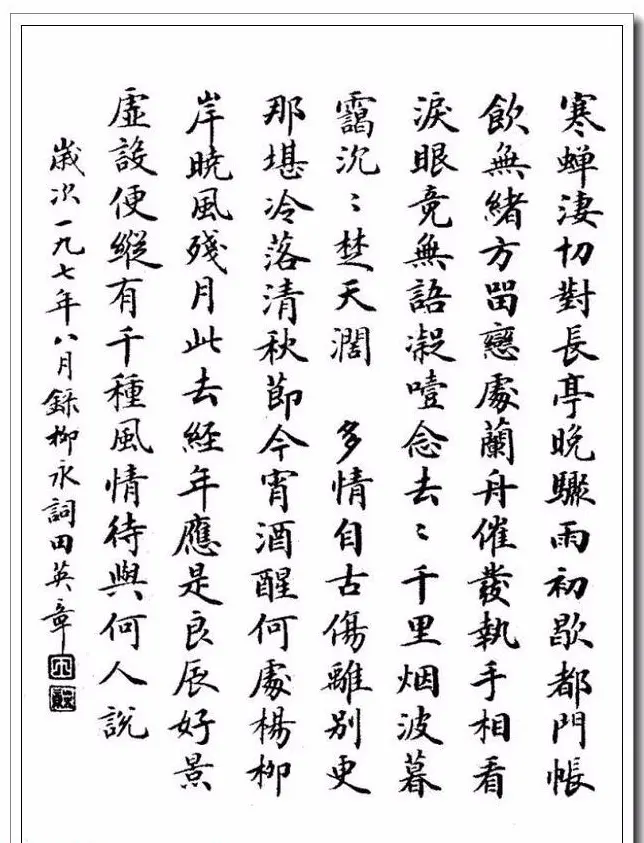 寒蝉淒切對長亭晚驟雨初歇都門帳
飲無緒方留戀處蘭舟催發執手相看
淚眼竟無語凝噎念去〻千里烟波暮
靄沉〻楚天濶 多情自古傷離別更
那堪冷落清秋節今宵酒醒何處楊柳
岸曉風殘月此去經年應是良辰好景
虛設便縱有千種風情待與何人說
歲次一九七年八月錄柳永詞田英章